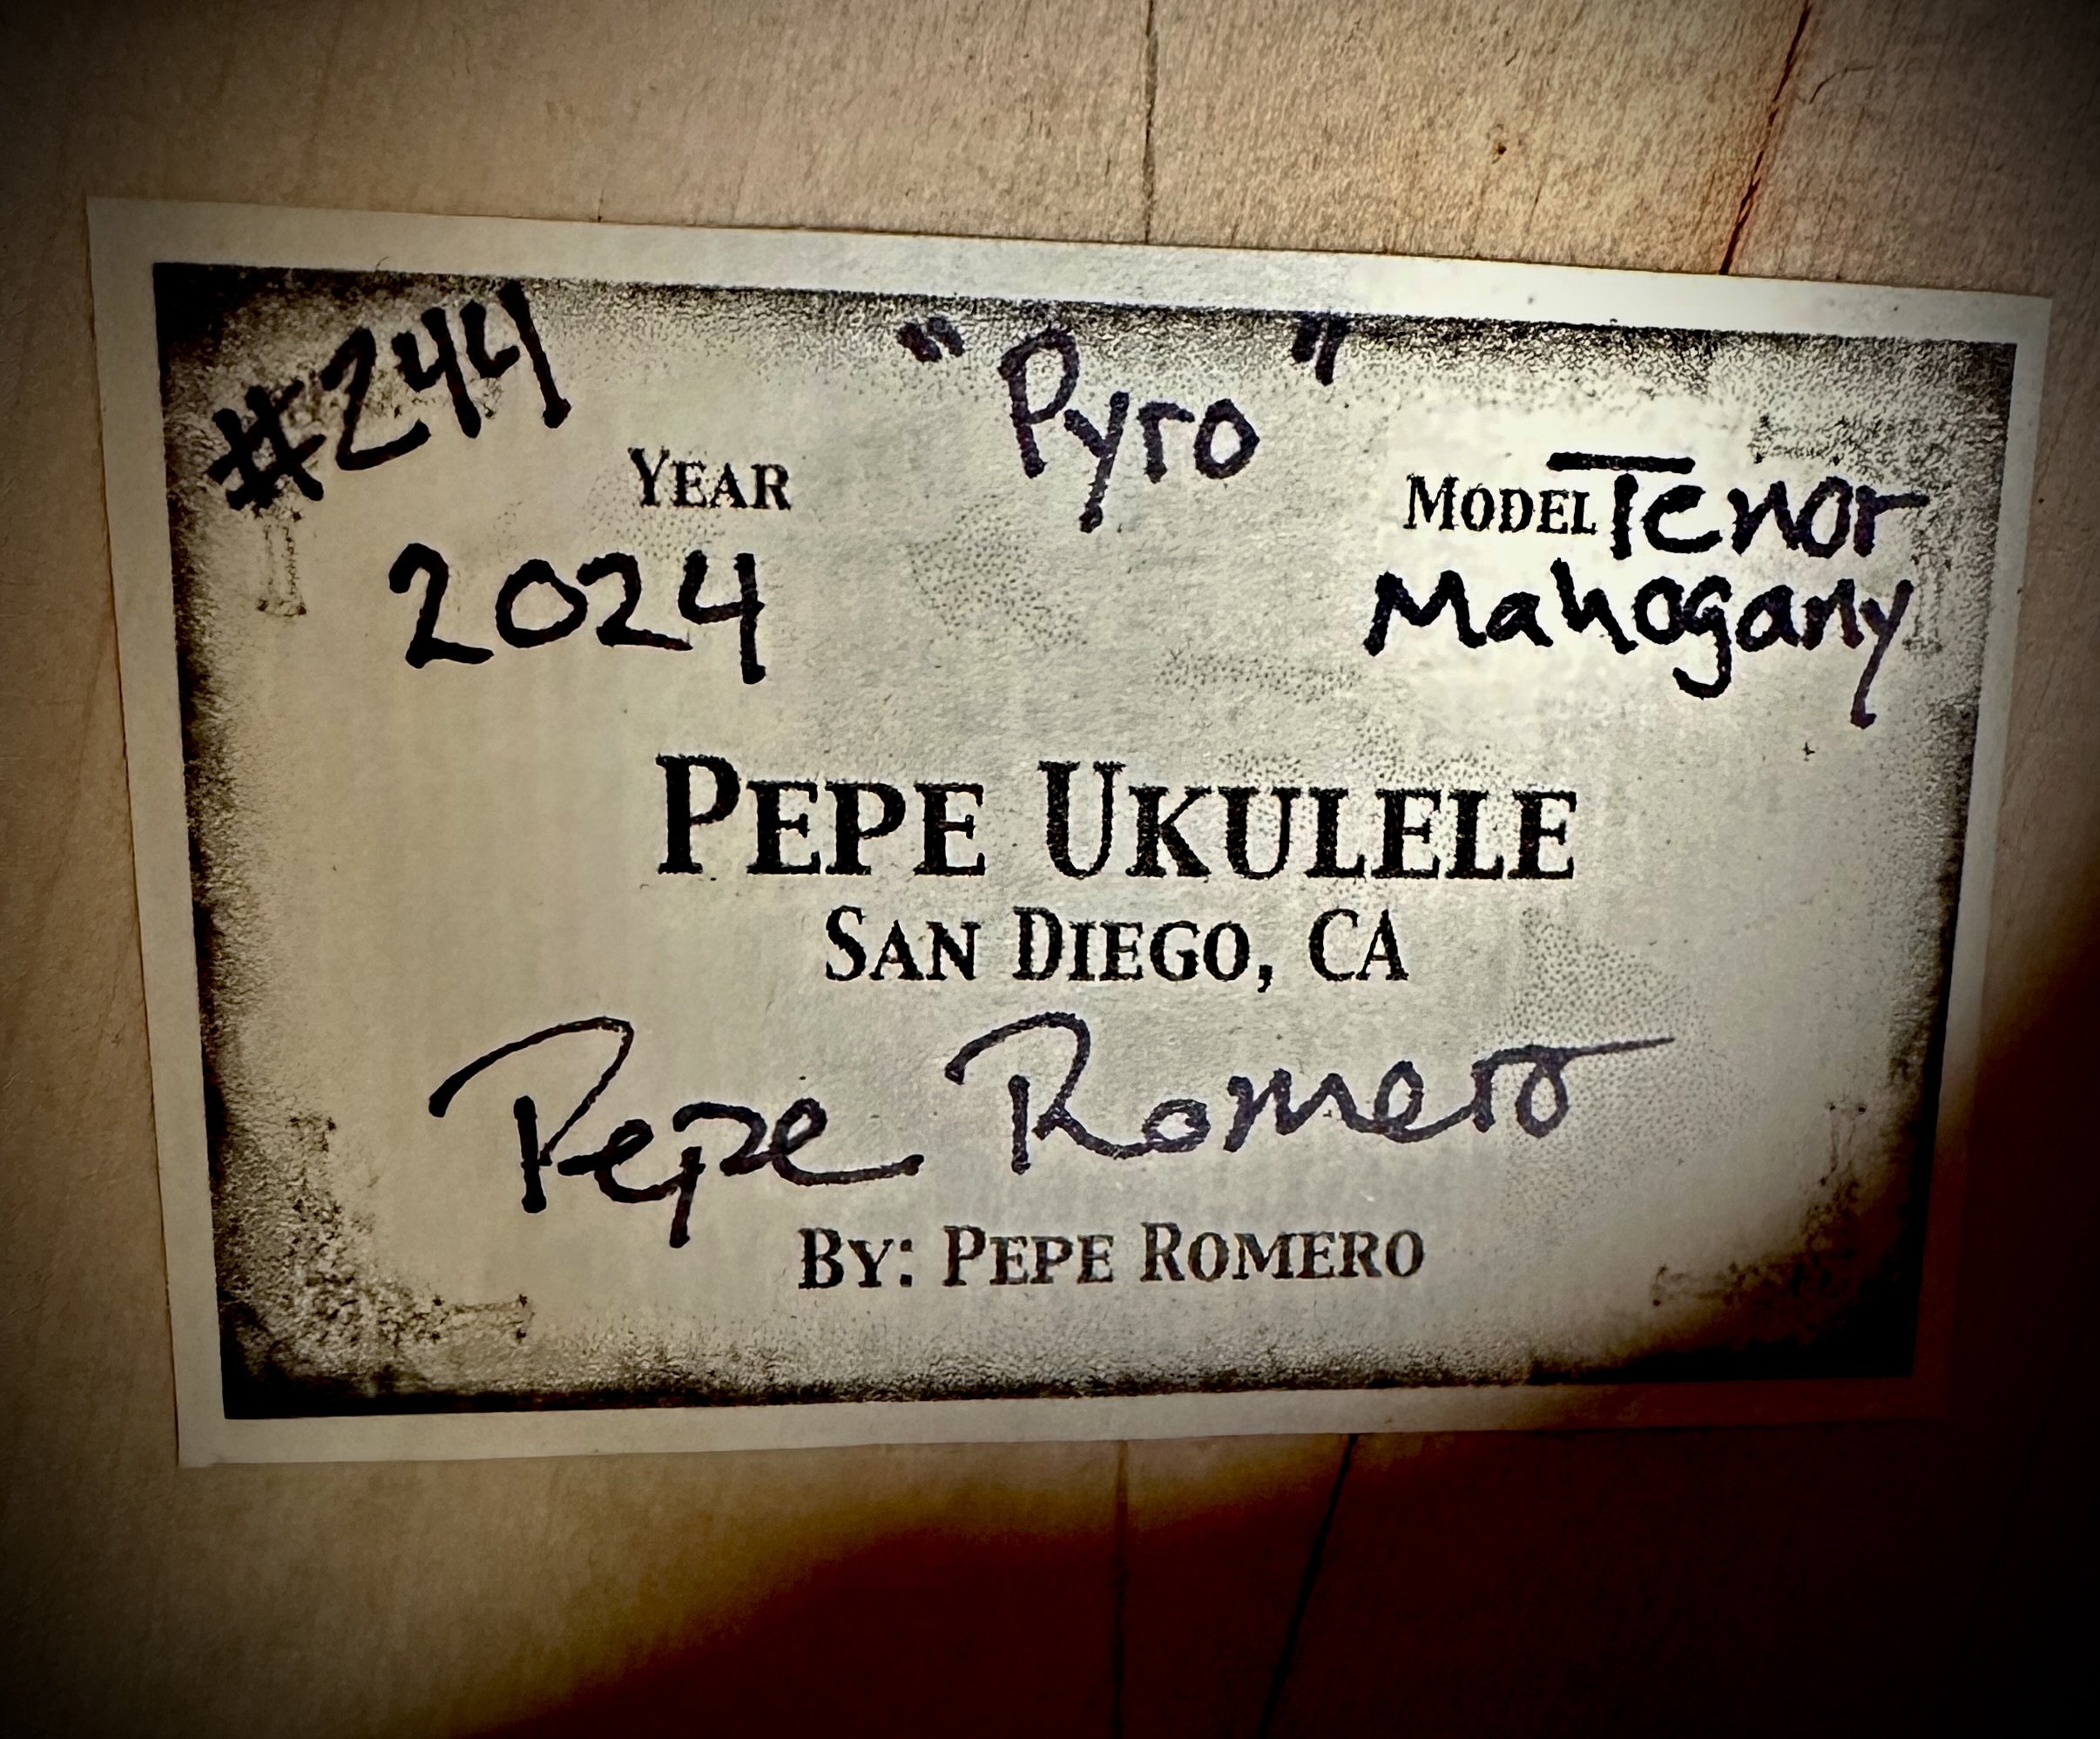 #244
"Pyro"
YEAR
MODEL Tenor
2024
Mahogany
PEPE UKULELE
SAN DIEGO, CA
Pepe Romero
BY: PEPE ROMERO